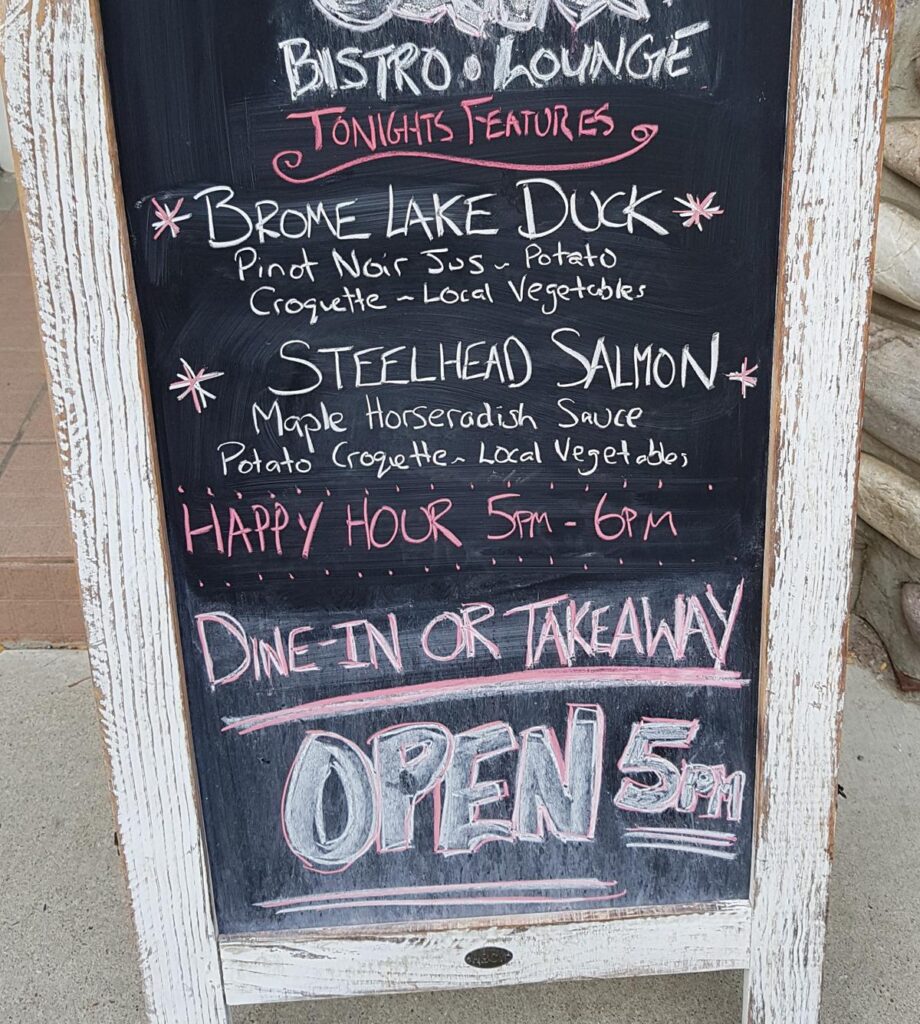 BISTRO • LOUNGE
TONIGHTS FEATURES
BROME LAKE DUCK
Pinot Noir Jus ~ Potato
Croquette ~ Local Vegetables
STEELHEAD SALMON
Maple Horseradish Sauce
Potato Croquette ~ Local Vegetables
HAPPY HOUR 5PM - 6PM
DINE-IN OR TAKEAWAY
OPEN 5PM